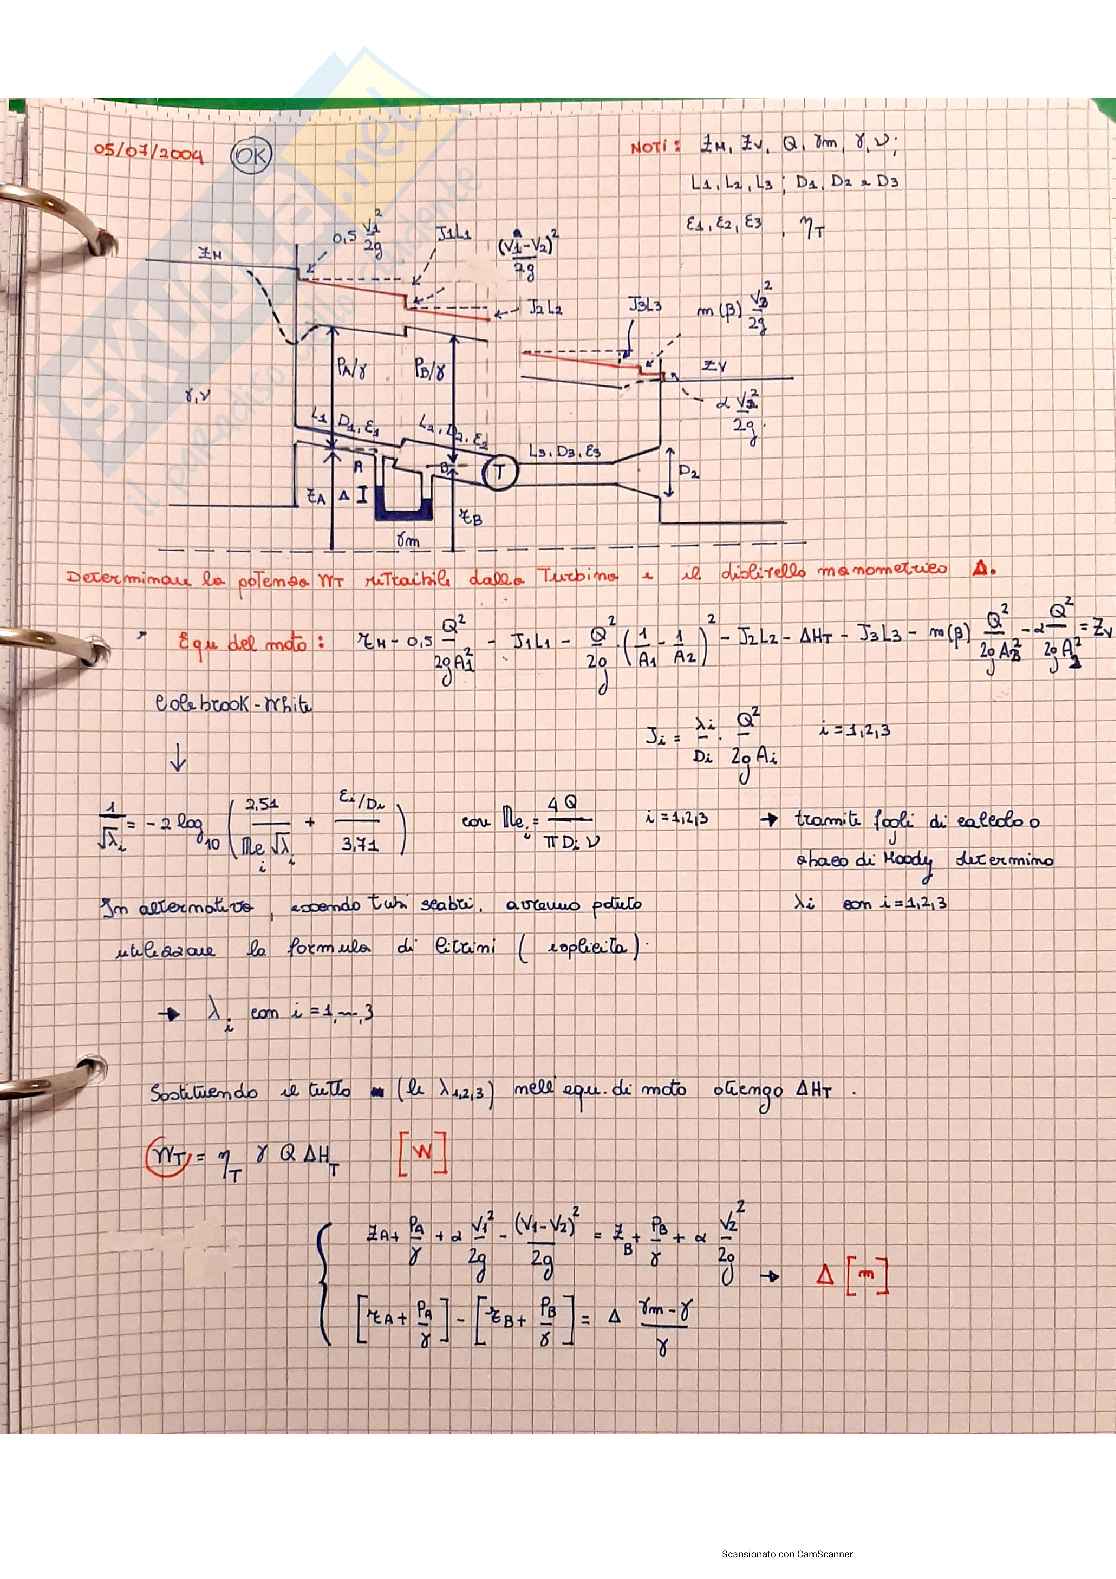 05/07/2004 OK
NOTI: ZM, ZV, Q, γm, γ, ν;
L1, L2, L3; D1, D2 e D3
ε1, ε2, ε3, ηT
ZM
0,5 V1²/2g
J1L1
(V1-V2)²/2g
J2L2
J3L3
m(β) V3²/2g
PA/γ
PB/γ
ZV
γ,ν
α V2²/2g
L1 D1, ε1
L2, D2, ε2
L3, D3, ε3
A
B
T
D2
ZA Δ
ZB
γm
Determinare la potenza WT ritraibile dalla Turbina e il dislivello manometrico Δ.
Equ del moto: ZM - 0,5 Q²/2gA1² - J1L1 - Q²/2g · (1/A1 - 1/A2)² - J2L2 - ΔHT - J3L3 - m(β) Q²/2gA3² - α Q²/2gA2² = ZV
Colebrook-White
↓
Ji = λi/Di · Q²/2gAi i=1,2,3
1/√λi = -2 log10 (2,51/Rei√λi + εi/Di/3,71) con Rei = 4Q/πDiν i=1,2,3 → tramite fogli di calcolo o
abaco di Moody determino
In alternativa, essendo tubi scabri, avremmo potuto λi con i=1,2,3
utilizzare la formula di Citrini (esplicita).
→ λi con i=1,...,3
Sostituendo il tutto (le λ1,2,3) nell'equ. di moto ottengo ΔHT.
WT = ηT γ Q ΔHT [W]
ZA + PA/γ + α V1²/2g - (V1-V2)²/2g = ZB + PB/γ + α V2²/2g
→ Δ [m]
[ZA + PA/γ] - [ZB + PB/γ] = Δ γm-γ/γ
Scansionato con CamScanner